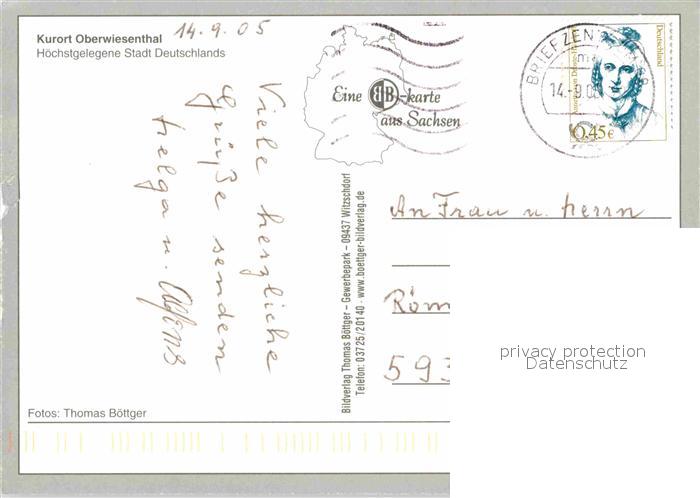 Kurort Oberwiesenthal
Höchstgelegene Stadt Deutschlands
14.9.05
Viele herzliche
Grüße senden
Helga u. Alfons
Fotos: Thomas Böttger
Eine BB-karte
aus Sachsen
Bildverlag Thomas Böttger – Gewerbepark – 09437 Witzschdorf
Telefon: 03725/20140 · www.boettger-bildverlag.de
BRIEFZEN
14.-9.0
Deutschland
0,45€
An Frau u. Herrn
Röm
593
privacy protection
Datenschutz